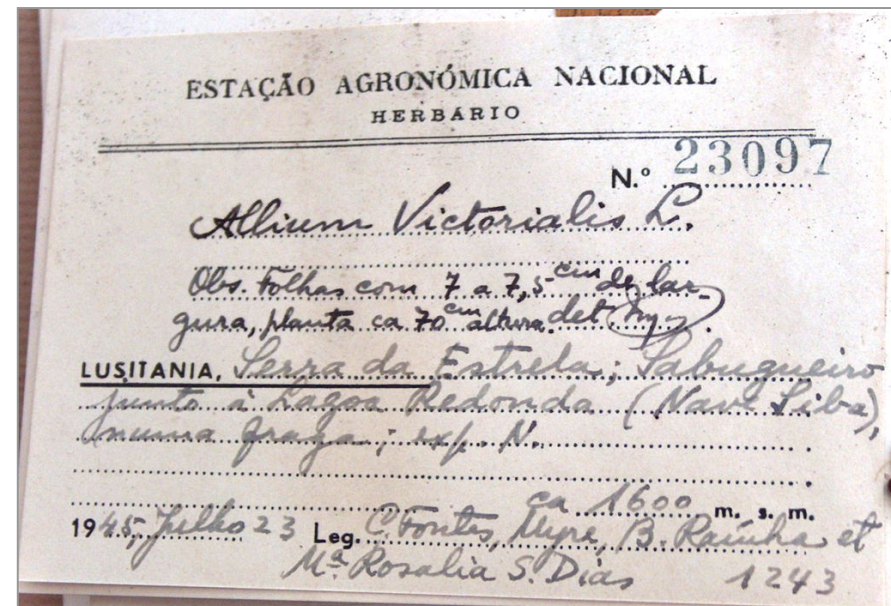 ESTAÇÃO AGRONÓMICA NACIONAL
HERBÁRIO
N.º 23097
Allium Victorialis L.
Obs. Folhas com 7 a 7,5 cm de lar-
gura, planta ca 70 cm altura. det.
LUSITANIA, Serra da Estrela; Sabugueiro
junto à Lagoa Redonda (Nave Siba),
numa fraga; exp. N.
ca 1600 m. s. m.
1945, Julho 23 Leg. C. Fontes, Myre, B. Rainha et
Mª Rosalia S. Dias 1243